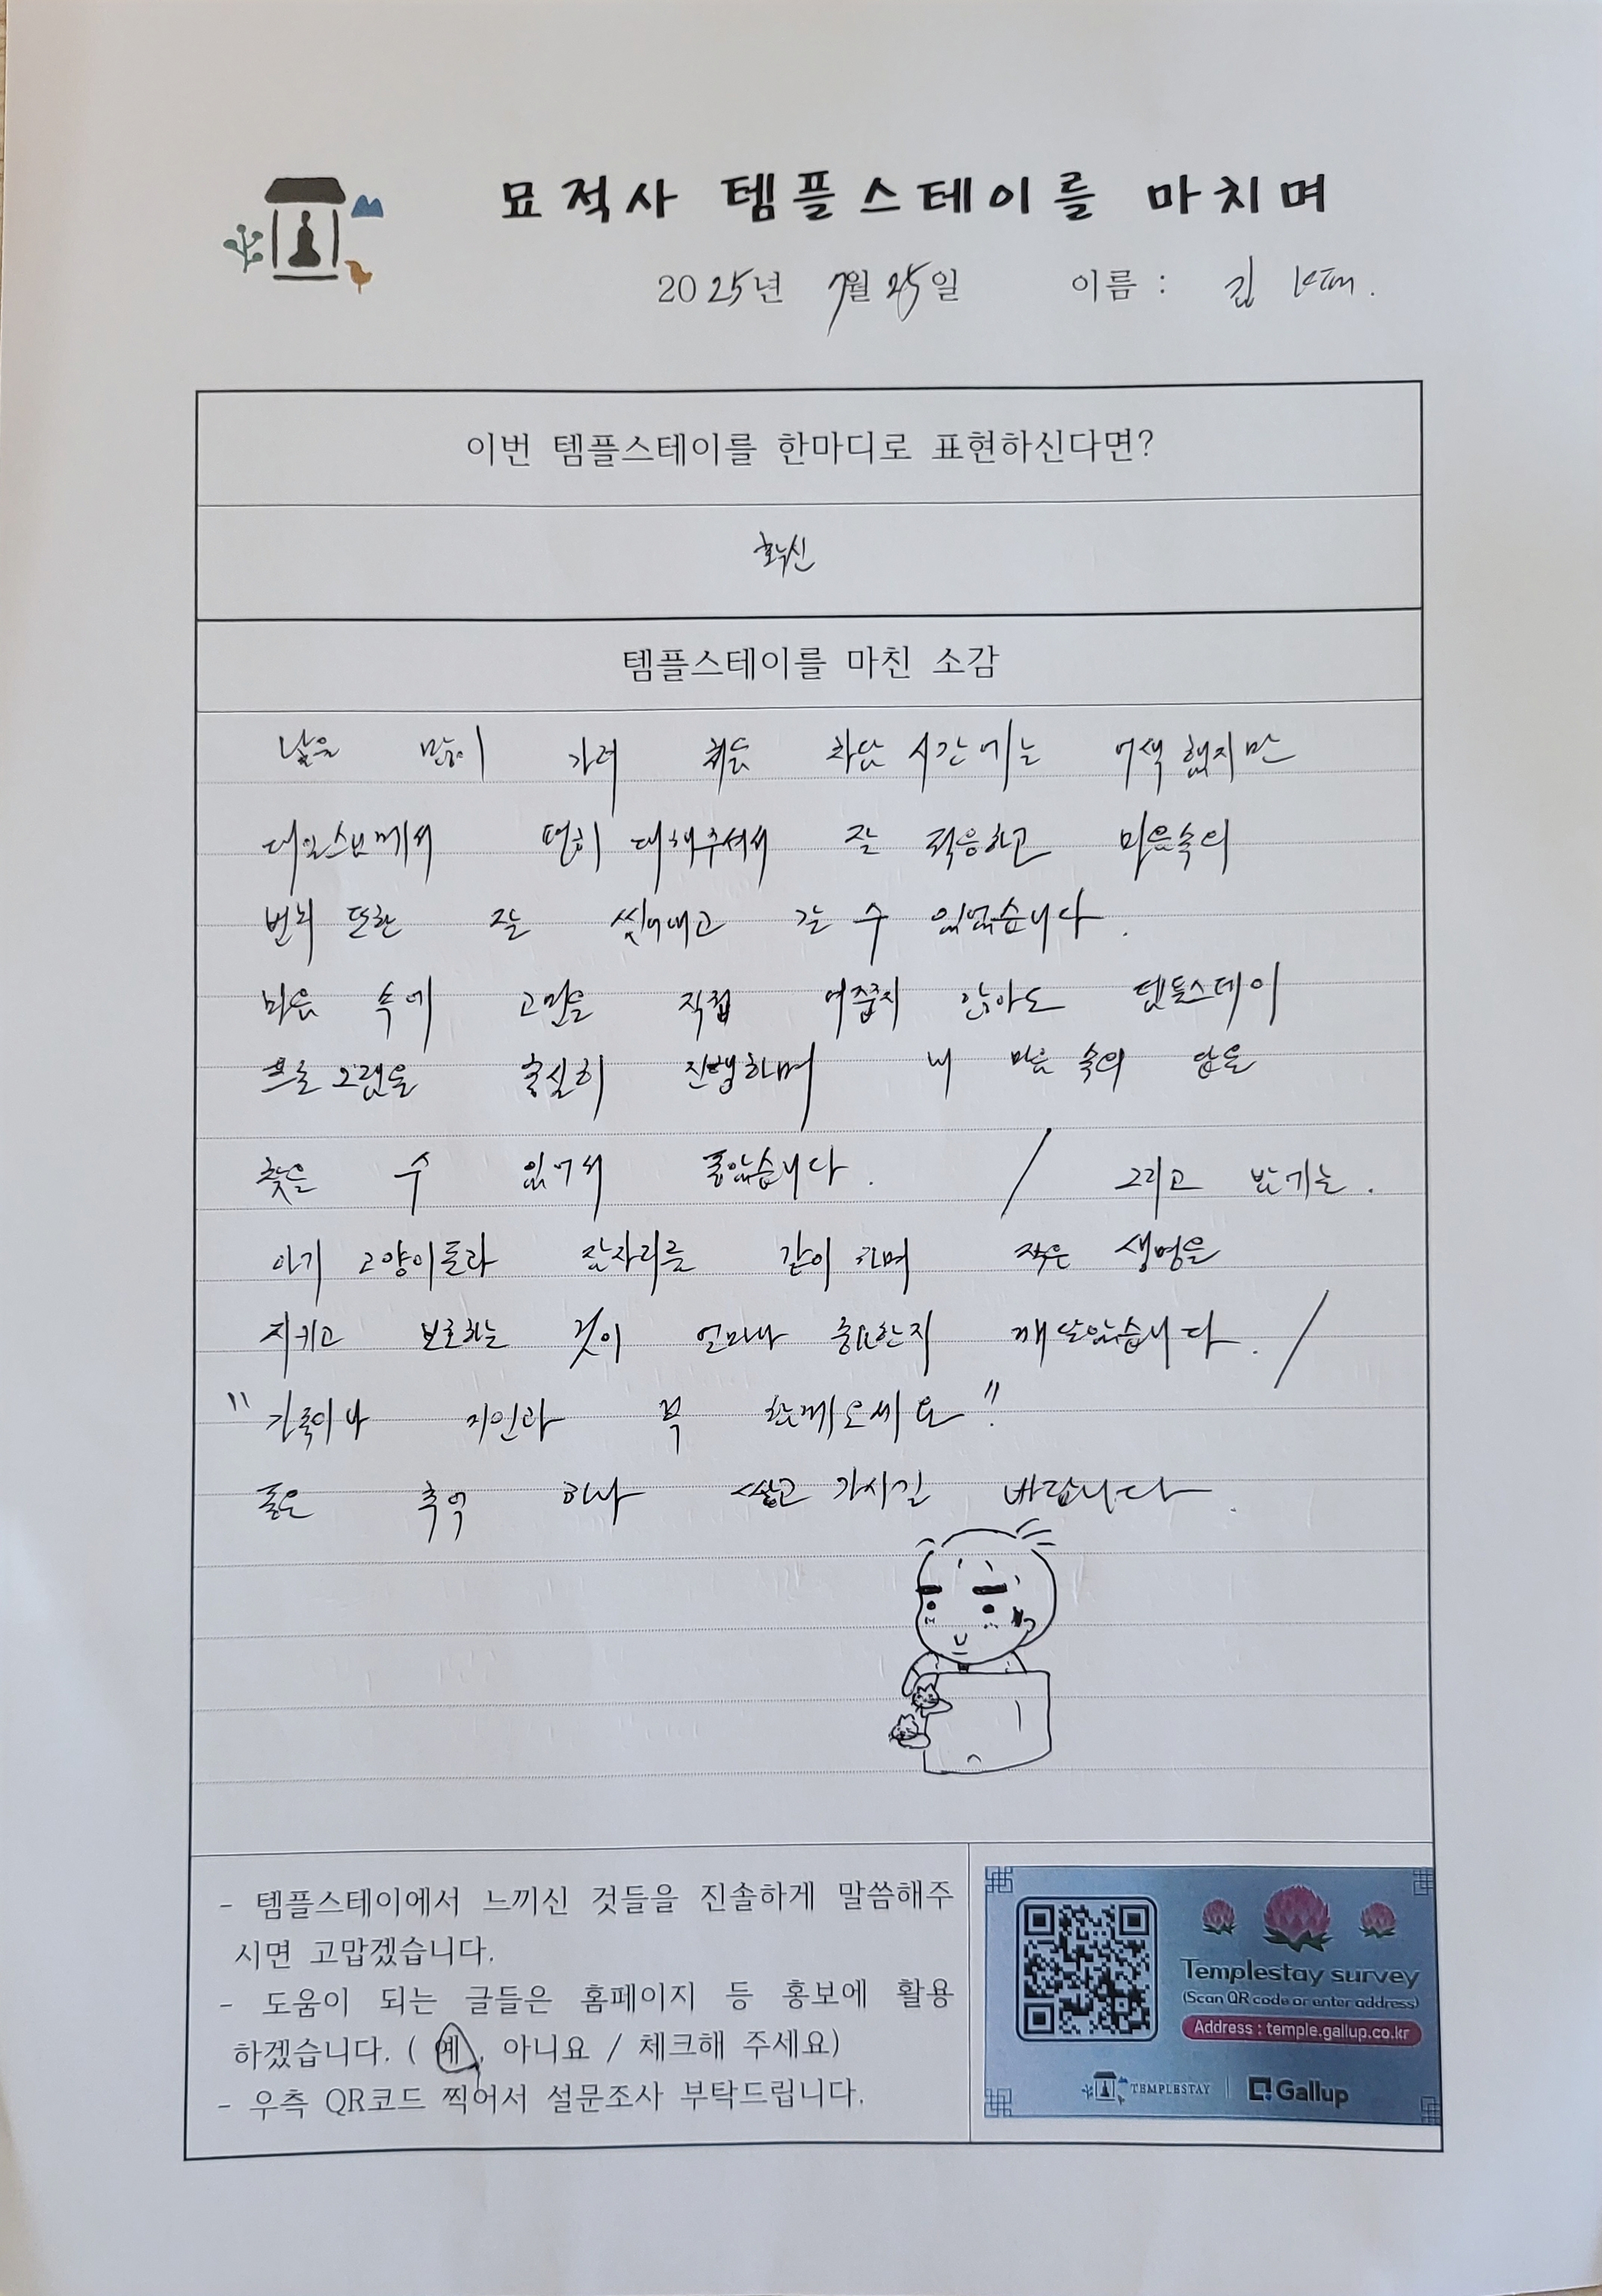 묘적사 템플스테이를 마치며
2025년 7월 25일 이름 : 김 KIM.
이번 템플스테이를 한마디로 표현하신다면?
확신
템플스테이를 마친 소감
낯을 많이 가려 처음 차담 시간에는 어색했지만
스님께서 편히 대해주셔서 잘 적응하고 마음속의
번뇌 또한 잘 씻어내고 갈 수 있었습니다.
마음 속에 고민을 직접 여쭙지 않아도 템플스테이
프로그램을 충실히 진행하며 내 마음 속의 답을
찾을 수 있어서 좋았습니다. / 그리고 밤에는.
아기 고양이들과 잠자리를 같이 하며 작은 생명을
지키고 보호하는 것이 얼마나 중요한지 깨달았습니다. /
"가족이나 지인과 꼭 함께오세요"
좋은 추억 하나 쌓고 가시길 바랍니다.
- 템플스테이에서 느끼신 것들을 진솔하게 말씀해주
시면 고맙겠습니다.
- 도움이 되는 글들은 홈페이지 등 홍보에 활용
하겠습니다. ( 예, 아니요 / 체크해 주세요)
- 우측 QR코드 찍어서 설문조사 부탁드립니다.
Templestay survey
(Scan QR code or enter address)
Address : temple.gallup.co.kr
TEMPLESTAY | Gallup